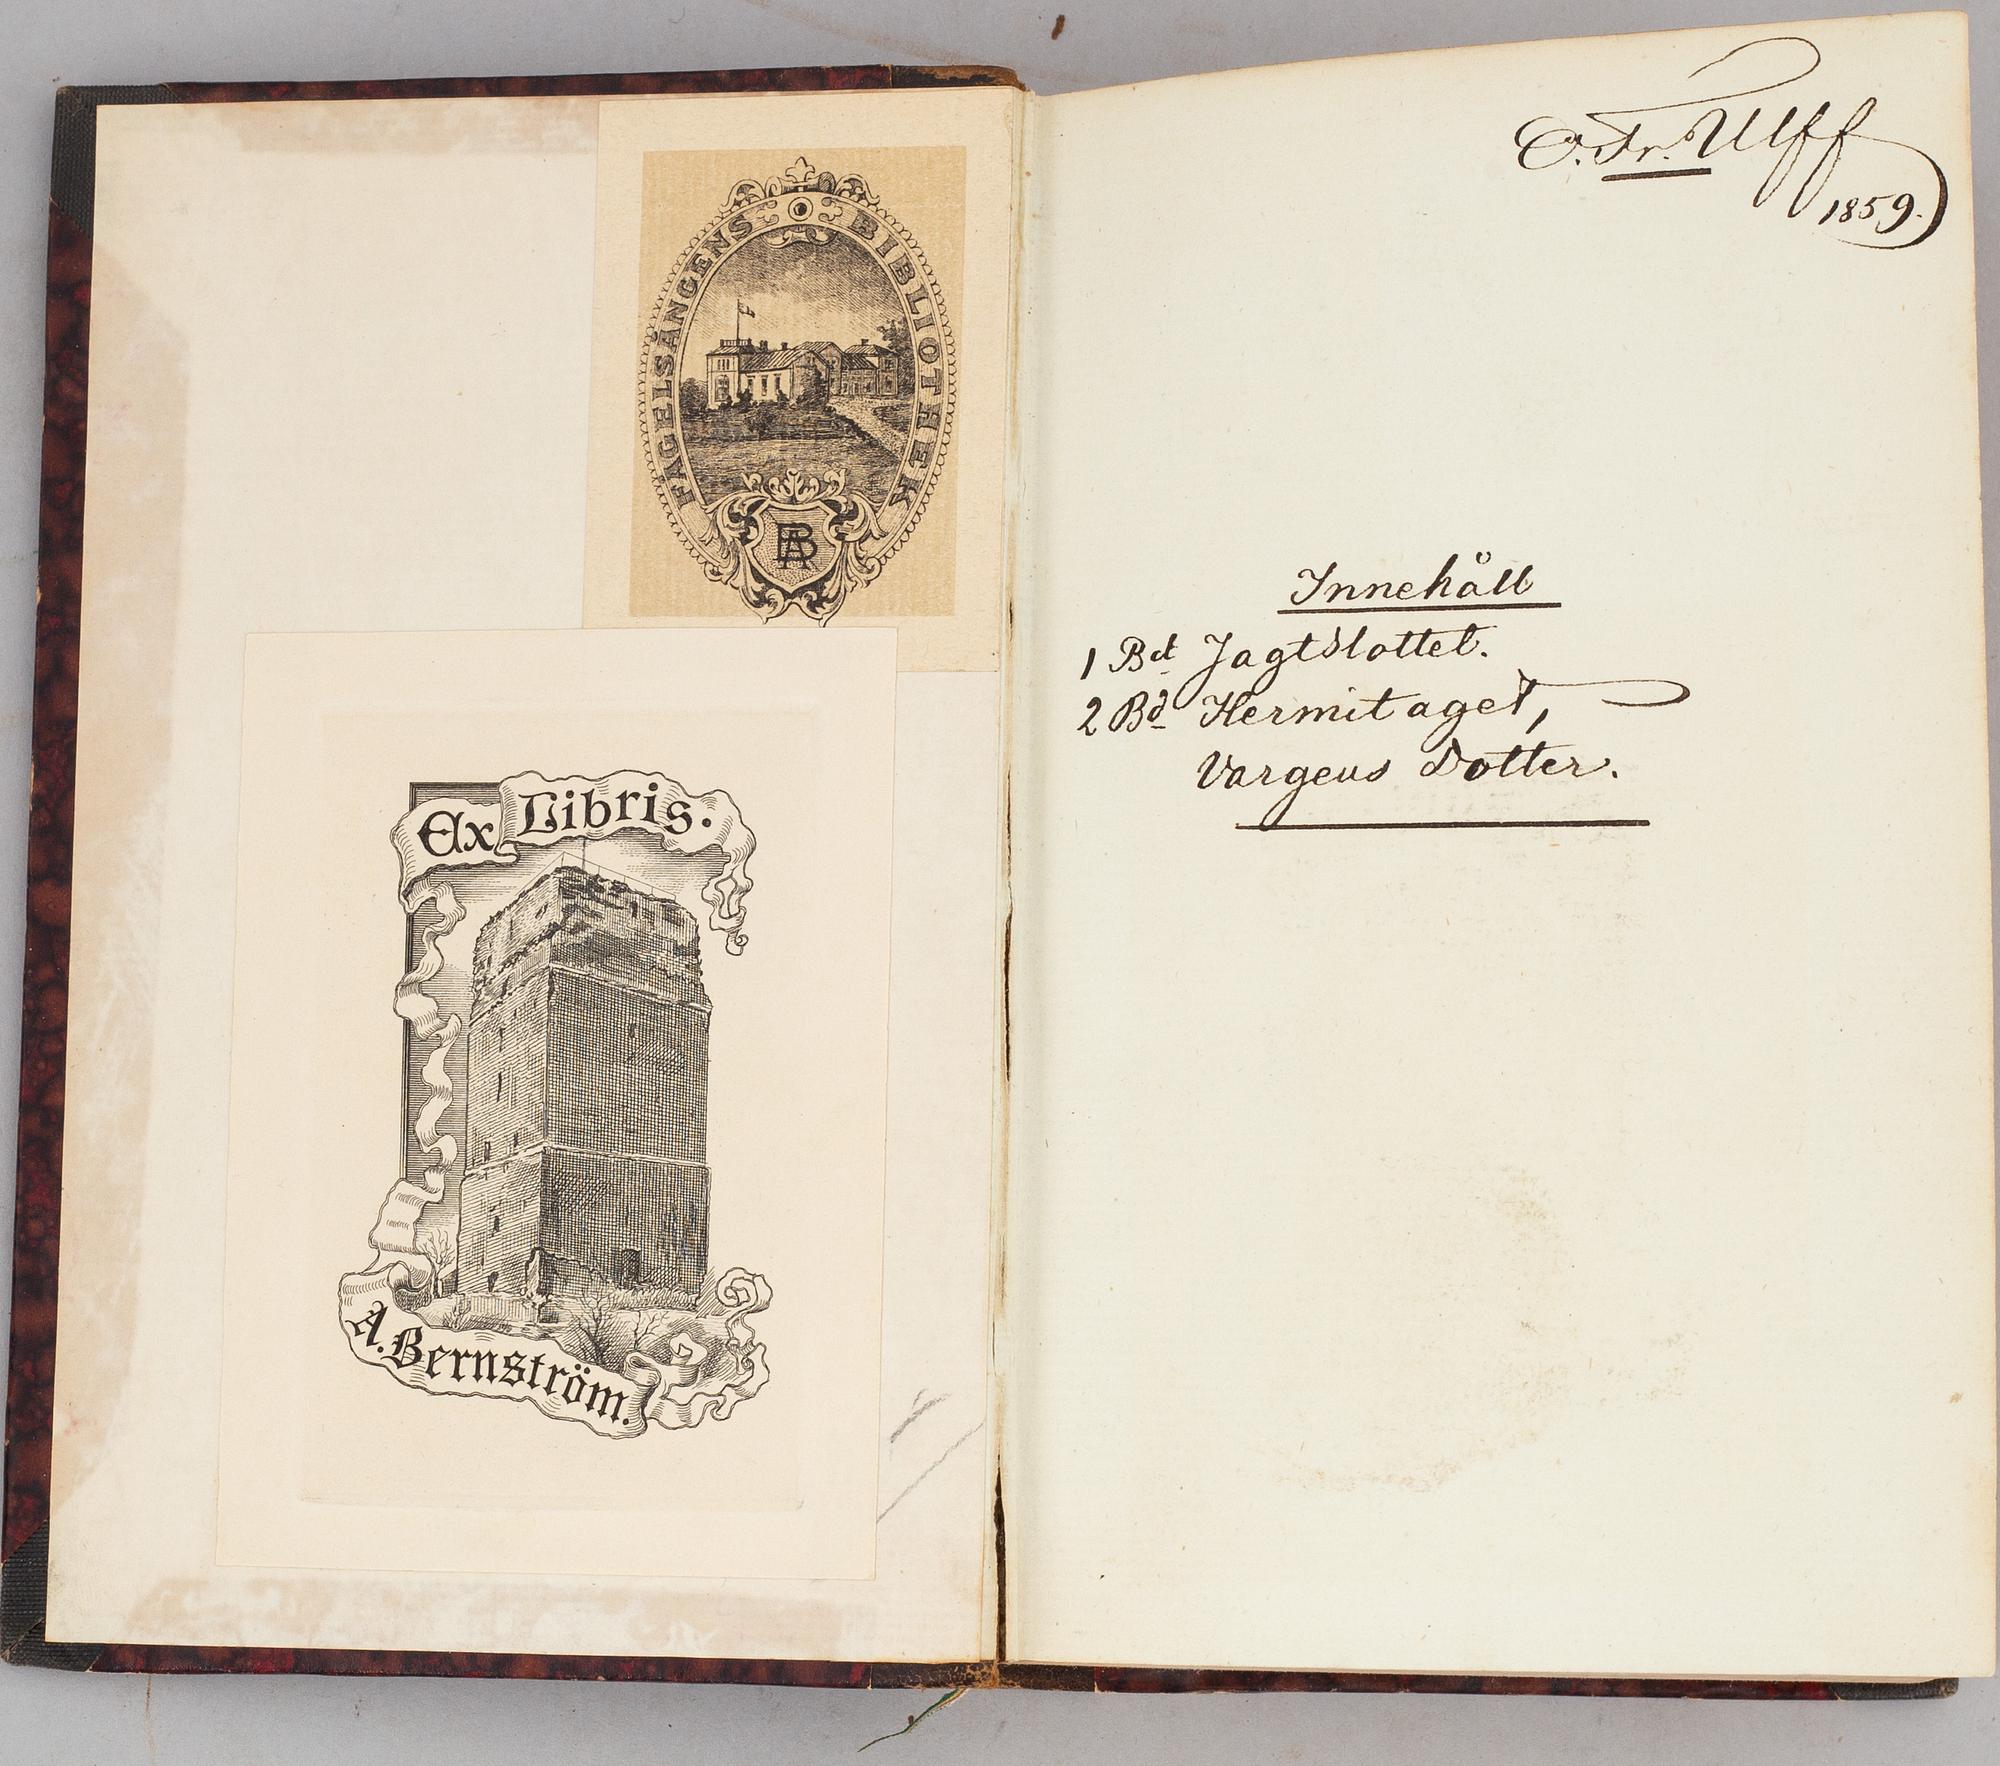 FÅGELSÅNGENS BIBLIOTHEK
BA
Ex Libris.
A. Bernström.
Fr. Ulff
1859.
Innehåll
1 Bd Jagtslottet.
2 Bd Hermitaget,
Vargens Dotter.